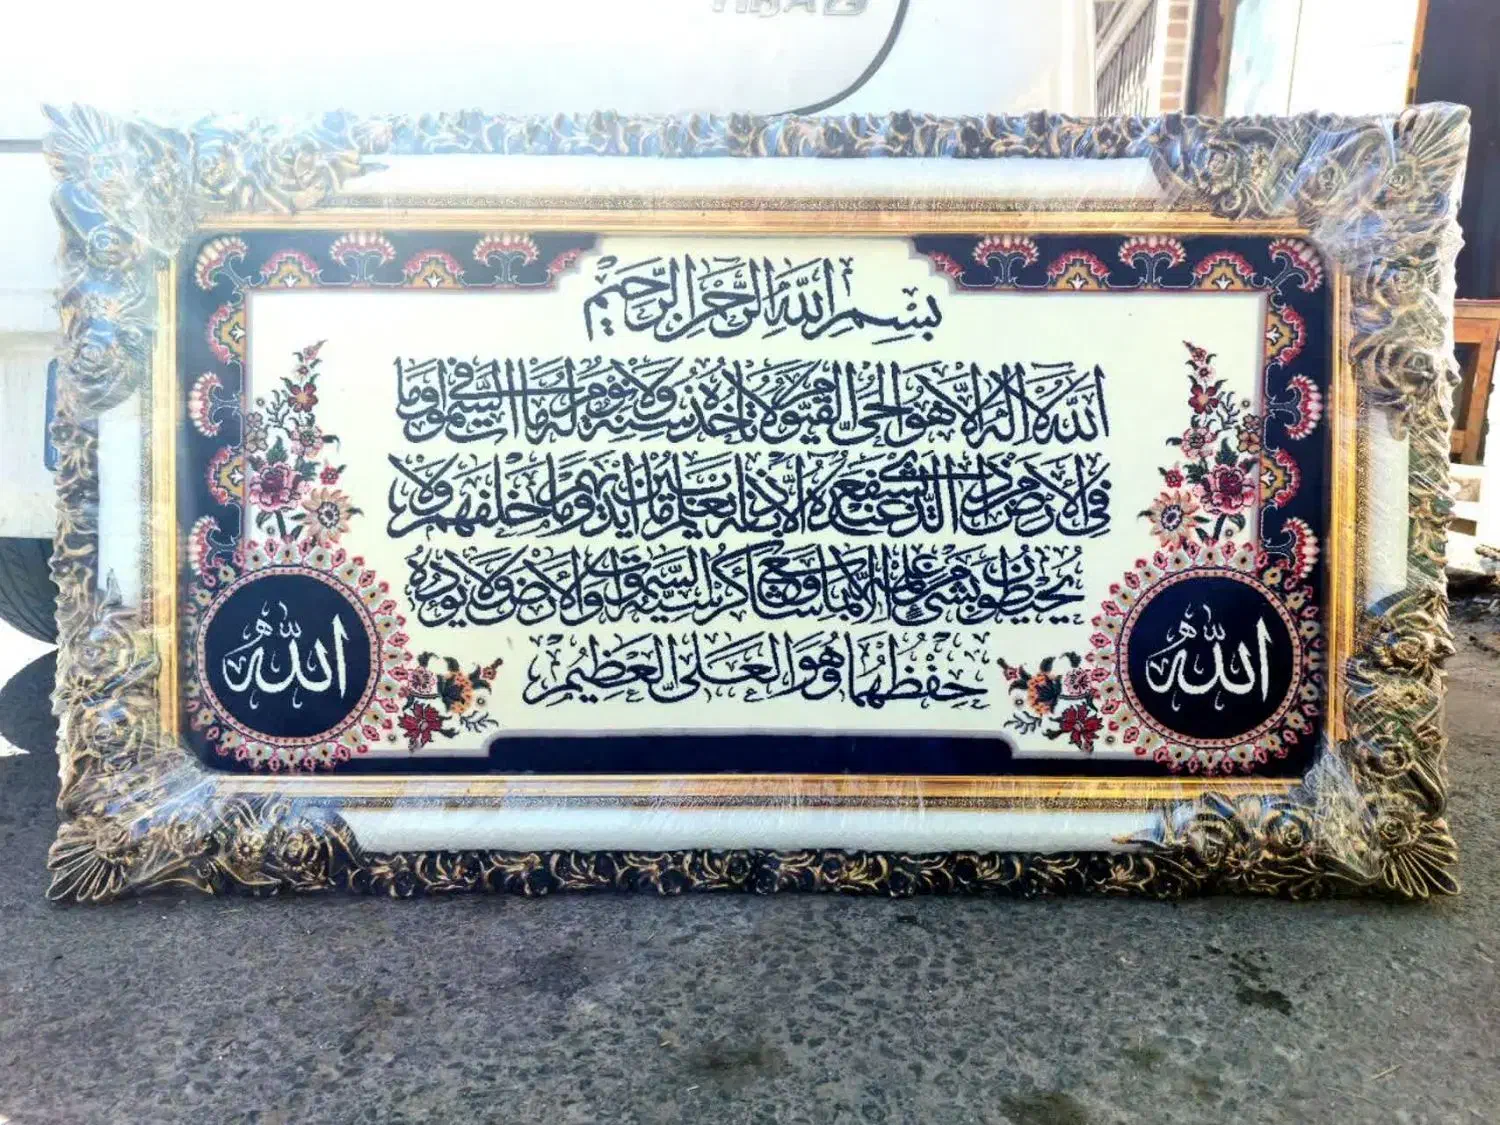 بِسْمِ اللَّهِ الرَّحْمَنِ الرَّحِيمِ
اللَّهُ لَا إِلَهَ إِلَّا هُوَ الْحَيُّ الْقَيُّومُ لَا تَأْخُذُهُ سِنَةٌ وَلَا نَوْمٌ لَهُ مَا فِي السَّمَوَاتِ وَمَا
فِي الْأَرْضِ مَنْ ذَا الَّذِي يَشْفَعُ عِنْدَهُ إِلَّا بِإِذْنِهِ يَعْلَمُ مَا بَيْنَ أَيْدِيهِمْ وَمَا خَلْفَهُمْ وَلَا
يُحِيطُونَ بِشَيْءٍ مِنْ عِلْمِهِ إِلَّا بِمَا شَاءَ وَسِعَ كُرْسِيُّهُ السَّمَوَاتِ وَالْأَرْضَ وَلَا يَؤُدُهُ
حِفْظُهُمَا وَهُوَ الْعَلِيُّ الْعَظِيمُ
اللَّه
اللَّه